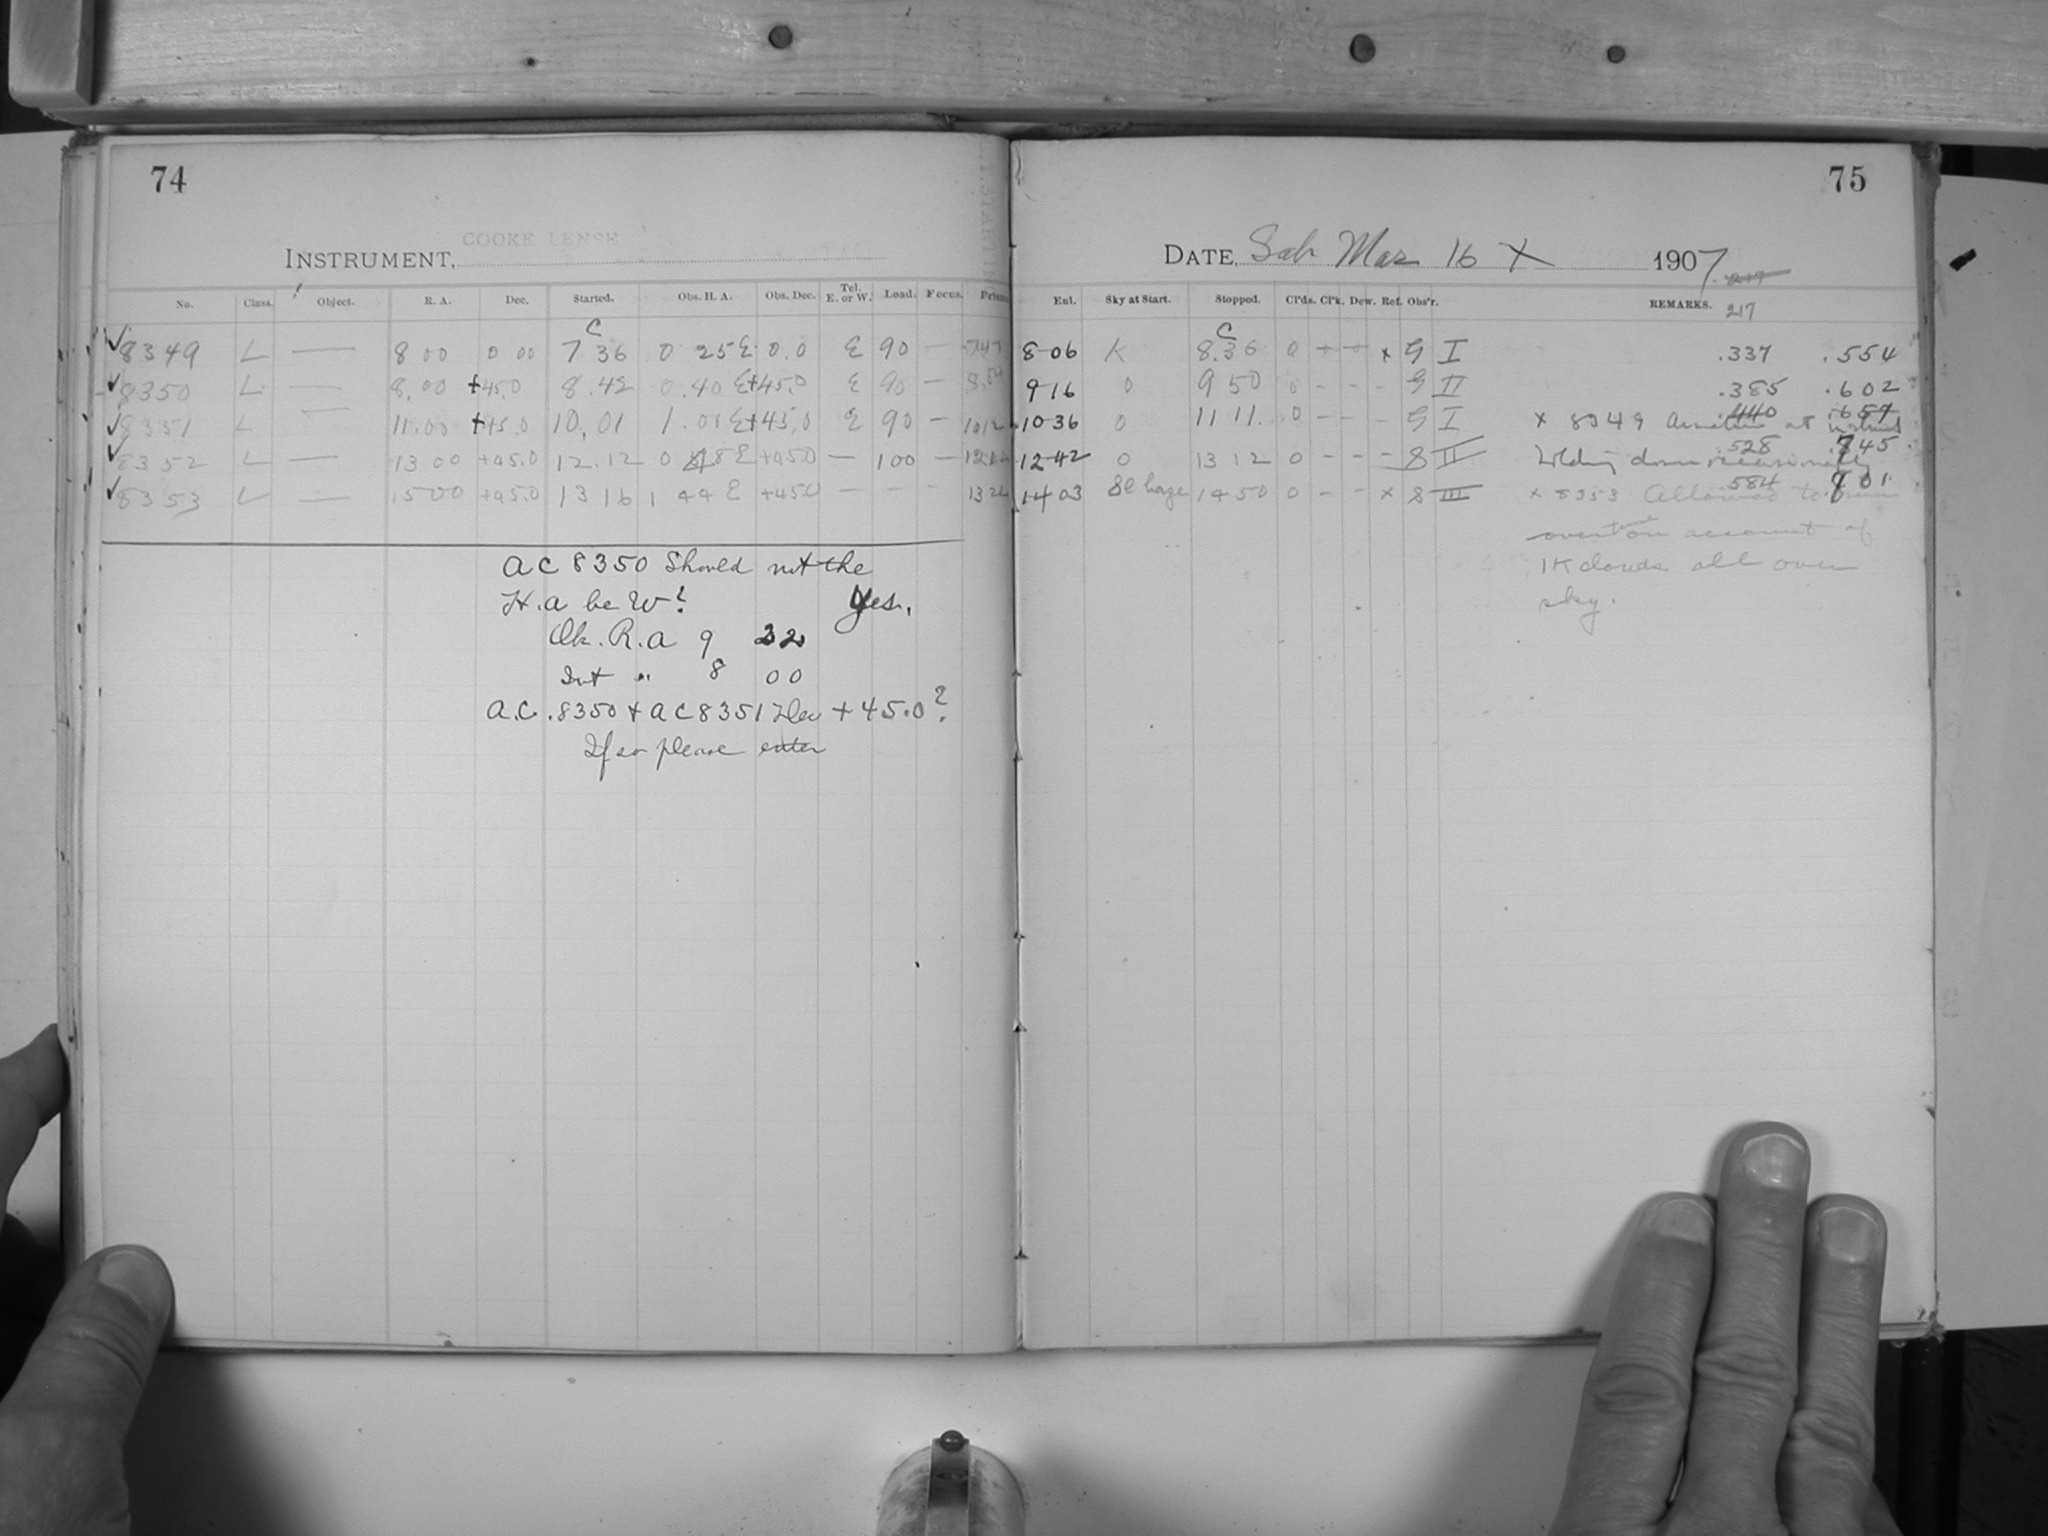 74
COOKE LENSE
INSTRUMENT,
No. Class. Object. R. A. Dec. Started. Obs. H. A. Obs. Dec. Tel. E. or W. Load. Focus.
C
8349 L — 8 00 0 00 7 36 0 25 E 0.0 E 90 — 747
8350 L — 8,00 +45.0 8.42 0.40 E +45.0 E 90 — 8,54
8351 L — 11.00 +45.0 10,01 1.01 E +45,0 E 90 — 1012
8352 L — 13 00 +45.0 12.12 0 48 E +450 — 100 —
8353 L — 1500 +45.0 13 16 1 44 E +450 — — -
AC 8350 Should not the
H.A be W? Yes.
Ob. R.A 9 32
Int " 8 00
A.C. 8350 + AC 8351 Dec +45.0?
If so please enter
75
DATE, Sat Mar 16 X 1907.
217
Ent. Sky at Start. Stopped. Cl'ds. Cl'k. Dew. Ref. Obs'r. REMARKS. 217
C
8-06 K 8.36 0 - - x G I .337 .554
916 0 9 50 0 - - - G II .385 .602
10-36 0 11 11. 0 - - - G I x 8349 at .440
12-42 0 13 12 0 - - - S II Holding down occasionally .528 .745
1403 Sl haze 1450 0 - - x S III x 8353 Allowed to run .584 .801
overtime on account of
1K clouds all over
sky.